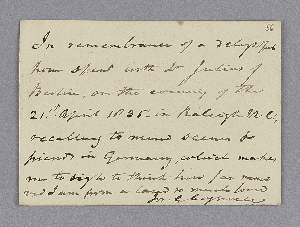 56
In remembrance of a delightful
hour spent with Dr Julius of
Berlin, on the evening of the
21st April 1835 in Raleigh N.C.,
recalling to mind scenes &
friends in Germany, which makes
me to sigh to think how far
and I am from a land so much loved